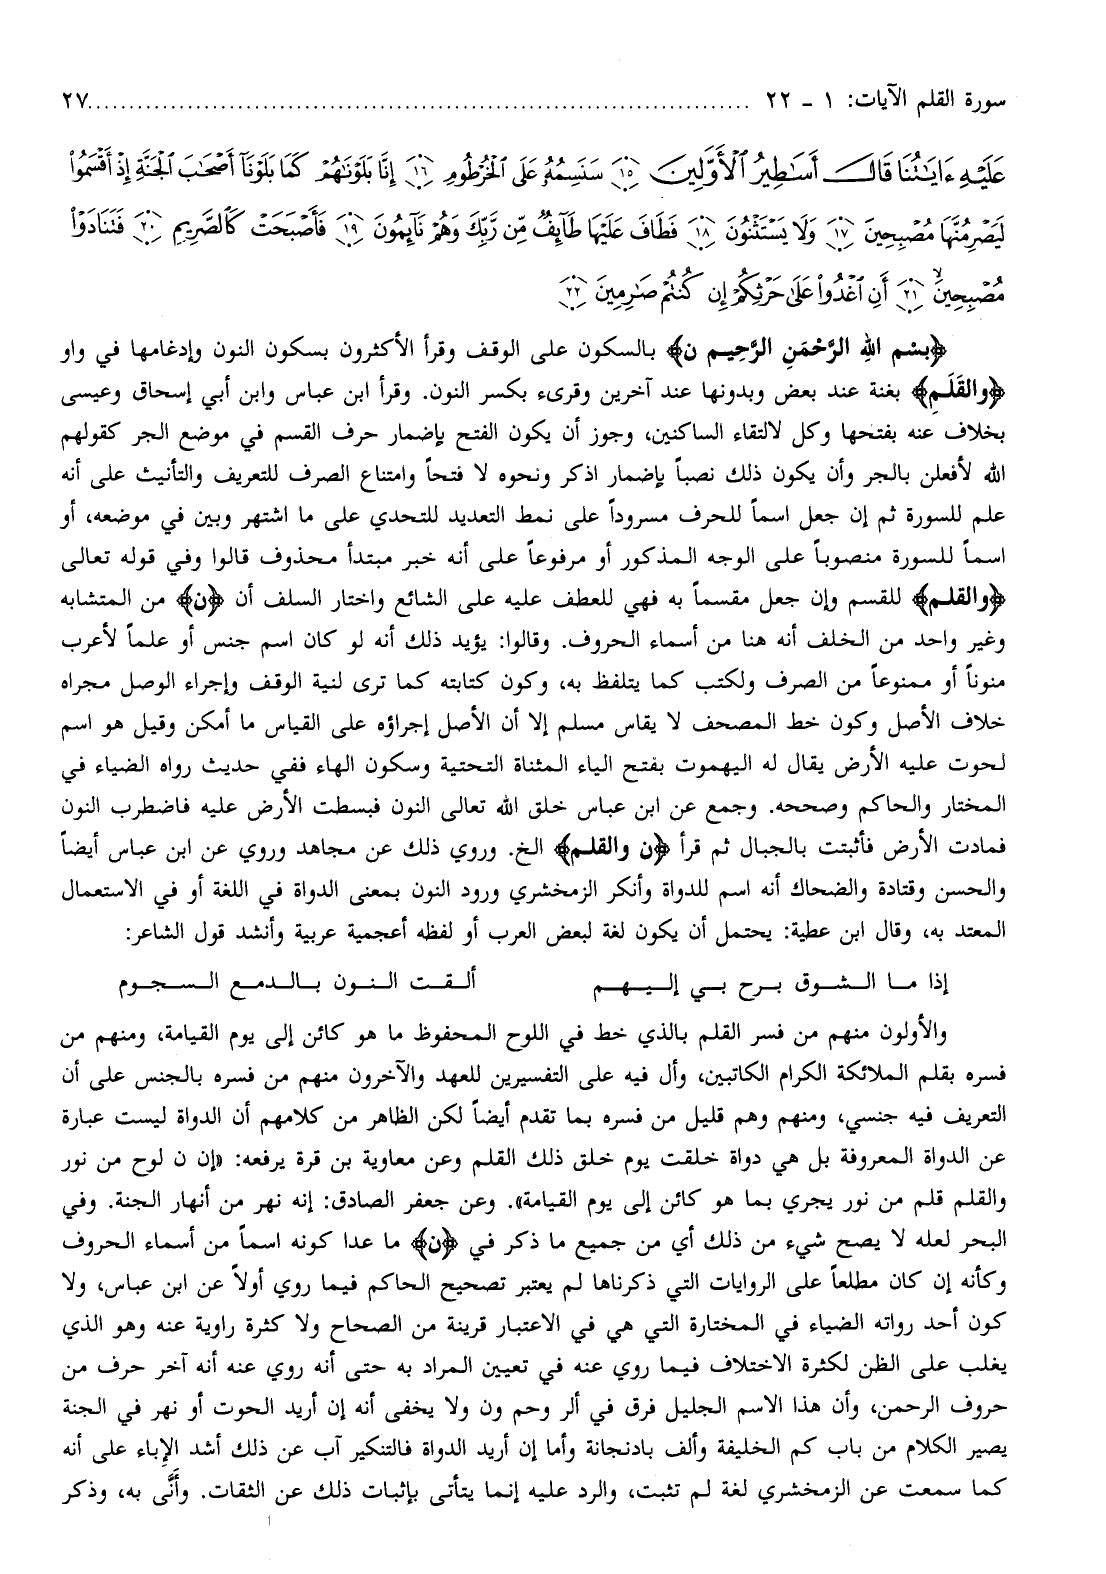 سورة القلم الآيات: ١ - ٢٢ ........................................................................ ٢٧
عَلَيْهِ ءَايَٰتُنَا قَالَ أَسَٰطِيرُ ٱلْأَوَّلِينَ ۝١٥ سَنَسِمُهُۥ عَلَى ٱلْخُرْطُومِ ۝١٦ إِنَّا بَلَوْنَٰهُمْ كَمَا بَلَوْنَآ أَصْحَٰبَ ٱلْجَنَّةِ إِذْ أَقْسَمُوا۟
لَيَصْرِمُنَّهَا مُصْبِحِينَ ۝١٧ وَلَا يَسْتَثْنُونَ ۝١٨ فَطَافَ عَلَيْهَا طَآئِفٌ مِّن رَّبِّكَ وَهُمْ نَآئِمُونَ ۝١٩ فَأَصْبَحَتْ كَٱلصَّرِيمِ ۝٢٠ فَتَنَادَوْا۟
مُصْبِحِينَ ۝٢١ أَنِ ٱغْدُوا۟ عَلَىٰ حَرْثِكُمْ إِن كُنتُمْ صَٰرِمِينَ ۝٢٢
﴿بسْم اللهِ الرَّحْمَنِ الرَّحِيم ن﴾ بالسكون على الوقف وقرأ الأكثرون بسكون النون وإدغامها في واو
﴿والقَلَمِ﴾ بغنة عند بعض وبدونها عند آخرين وقرىء بكسر النون. وقرأ ابن عباس وابن أبي إسحاق وعيسى
بخلاف عنه بفتحها وكل لالتقاء الساكنين، وجوز أن يكون الفتح بإضمار حرف القسم في موضع الجر كقولهم
الله لأفعلن بالجر وأن يكون ذلك نصباً بإضمار اذكر ونحوه لا فتحاً وامتناع الصرف للتعريف والتأنيث على أنه
علم للسورة ثم إن جعل اسماً للحرف مسروداً على نمط التعديد للتحدي على ما اشتهر وبين في موضعه، أو
اسماً للسورة منصوباً على الوجه المذكور أو مرفوعاً على أنه خبر مبتدأ محذوف قالوا وفي قوله تعالى
﴿والقلم﴾ للقسم وإن جعل مقسماً به فهي للعطف عليه على الشائع واختار السلف أن ﴿ن﴾ من المتشابه
وغير واحد من الخلف أنه هنا من أسماء الحروف. وقالوا: يؤيد ذلك أنه لو كان اسم جنس أو علماً لأعرب
منوناً أو ممنوعاً من الصرف ولكتب كما يتلفظ به، وكون كتابته كما ترى لنية الوقف وإجراء الوصل مجراه
خلاف الأصل وكون خط المصحف لا يقاس مسلم إلا أن الأصل إجراؤه على القياس ما أمكن وقيل هو اسم
لحوت عليه الأرض يقال له اليهموت بفتح الياء المثناة التحتية وسكون الهاء ففي حديث رواه الضياء في
المختار والحاكم وصححه. وجمع عن ابن عباس خلق الله تعالى النون فبسطت الأرض عليه فاضطرب النون
فمادت الأرض فأثبتت بالجبال ثم قرأ ﴿ن والقلم﴾ الخ. وروي ذلك عن مجاهد وروي عن ابن عباس أيضاً
والحسن وقتادة والضحاك أنه اسم للدواة وأنكر الزمخشري ورود النون بمعنى الدواة في اللغة أو في الاستعمال
المعتد به، وقال ابن عطية: يحتمل أن يكون لغة لبعض العرب أو لفظه أعجمية عربية وأنشد قول الشاعر:
إذا ما الشوق برح بي إليهم ألقت النون بالدمع السجوم
والأولون منهم من فسر القلم بالذي خط في اللوح المحفوظ ما هو كائن إلى يوم القيامة، ومنهم من
فسره بقلم الملائكة الكرام الكاتبين، وأل فيه على التفسيرين للعهد والآخرون منهم من فسره بالجنس على أن
التعريف فيه جنسي، ومنهم وهم قليل من فسره بما تقدم أيضاً لكن الظاهر من كلامهم أن الدواة ليست عبارة
عن الدواة المعروفة بل هي دواة خلقت يوم خلق ذلك القلم وعن معاوية بن قرة يرفعه: «إن ن لوح من نور
والقلم قلم من نور يجري بما هو كائن إلى يوم القيامة». وعن جعفر الصادق: إنه نهر من أنهار الجنة. وفي
البحر لعله لا يصح شيء من ذلك أي من جميع ما ذكر في ﴿ن﴾ ما عدا كونه اسماً من أسماء الحروف
وكأنه إن كان مطلعاً على الروايات التي ذكرناها لم يعتبر تصحيح الحاكم فيما روي أولاً عن ابن عباس، ولا
كون أحد رواته الضياء في المختارة التي هي في الاعتبار قرينة من الصحاح ولا كثرة راوية عنه وهو الذي
يغلب على الظن لكثرة الاختلاف فيما روي عنه في تعيين المراد به حتى أنه روي عنه أنه آخر حرف من
حروف الرحمن، وأن هذا الاسم الجليل فرق في ألر وحم ون ولا يخفى أنه إن أريد الحوت أو نهر في الجنة
يصير الكلام من باب كم الخليفة وألف بادنجانة وأما إن أريد الدواة فالتنكير آب عن ذلك أشد الإباء على أنه
كما سمعت عن الزمخشري لغة لم تثبت، والرد عليه إنما يتأتى بإثبات ذلك عن الثقات. وأنَّى به، وذكر